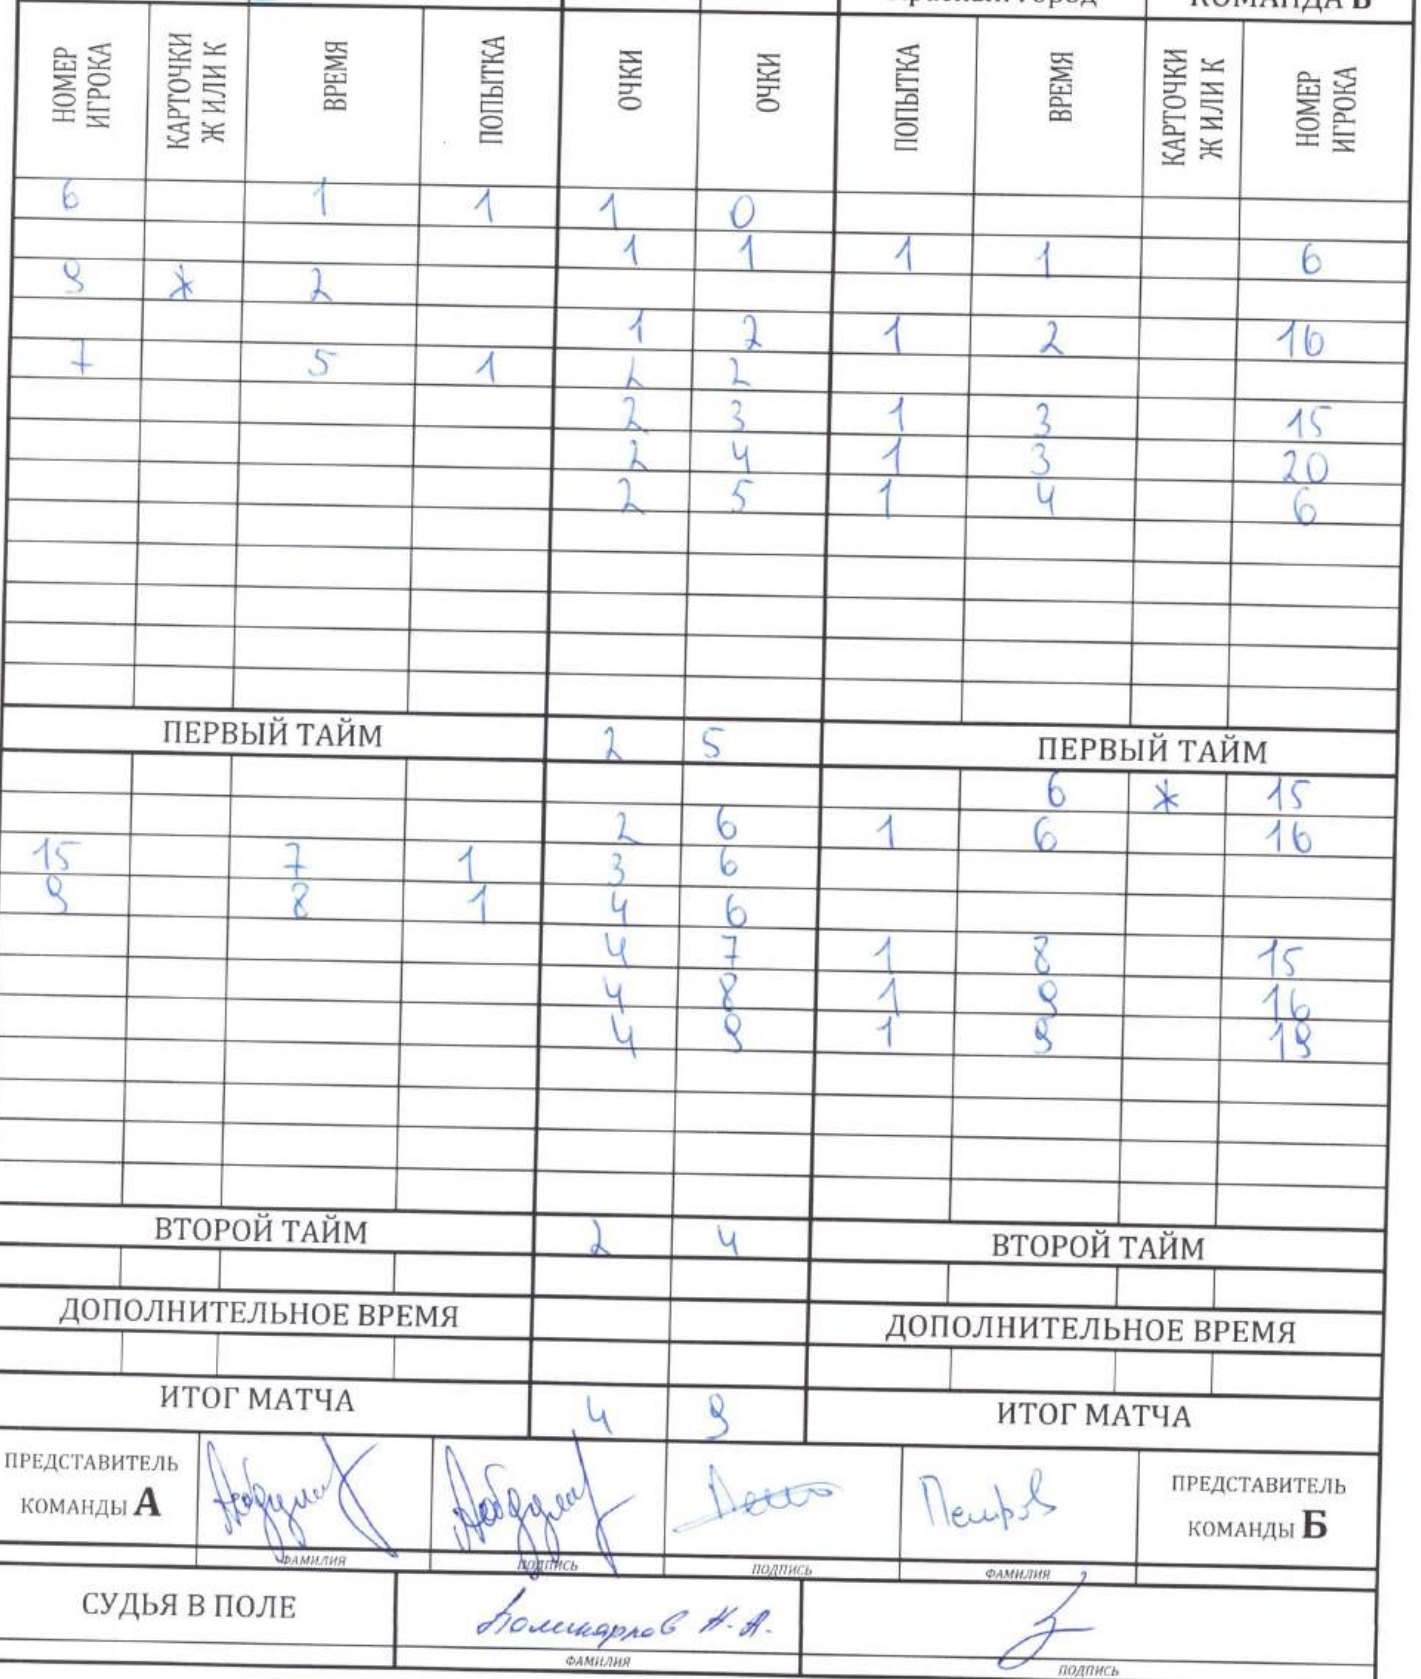 КОМАНДА Б
НОМЕР ИГРОКА КАРТОЧКИ Ж ИЛИ К ВРЕМЯ ПОПЫТКА ОЧКИ ОЧКИ ПОПЫТКА ВРЕМЯ КАРТОЧКИ Ж ИЛИ К НОМЕР ИГРОКА
6 1 1 1 0
1 1 1 1 6
9 Ж 2
1 2 1 2 16
7 5 1 2 2
2 3 1 3 15
2 4 1 3 20
2 5 1 4 6
ПЕРВЫЙ ТАЙМ 2 5 ПЕРВЫЙ ТАЙМ
6 Ж 15
2 6 1 6 16
15 7 1 3 6
9 8 1 4 6
4 7 1 8 15
4 8 1 9 16
4 9 1 9 19
ВТОРОЙ ТАЙМ 2 4 ВТОРОЙ ТАЙМ
ДОПОЛНИТЕЛЬНОЕ ВРЕМЯ ДОПОЛНИТЕЛЬНОЕ ВРЕМЯ
ИТОГ МАТЧА 4 9 ИТОГ МАТЧА
ПРЕДСТАВИТЕЛЬ КОМАНДЫ А Петров ПРЕДСТАВИТЕЛЬ КОМАНДЫ Б
ФАМИЛИЯ ПОДПИСЬ ПОДПИСЬ ФАМИЛИЯ
СУДЬЯ В ПОЛЕ Поликарпов Н.А.
ФАМИЛИЯ ПОДПИСЬ